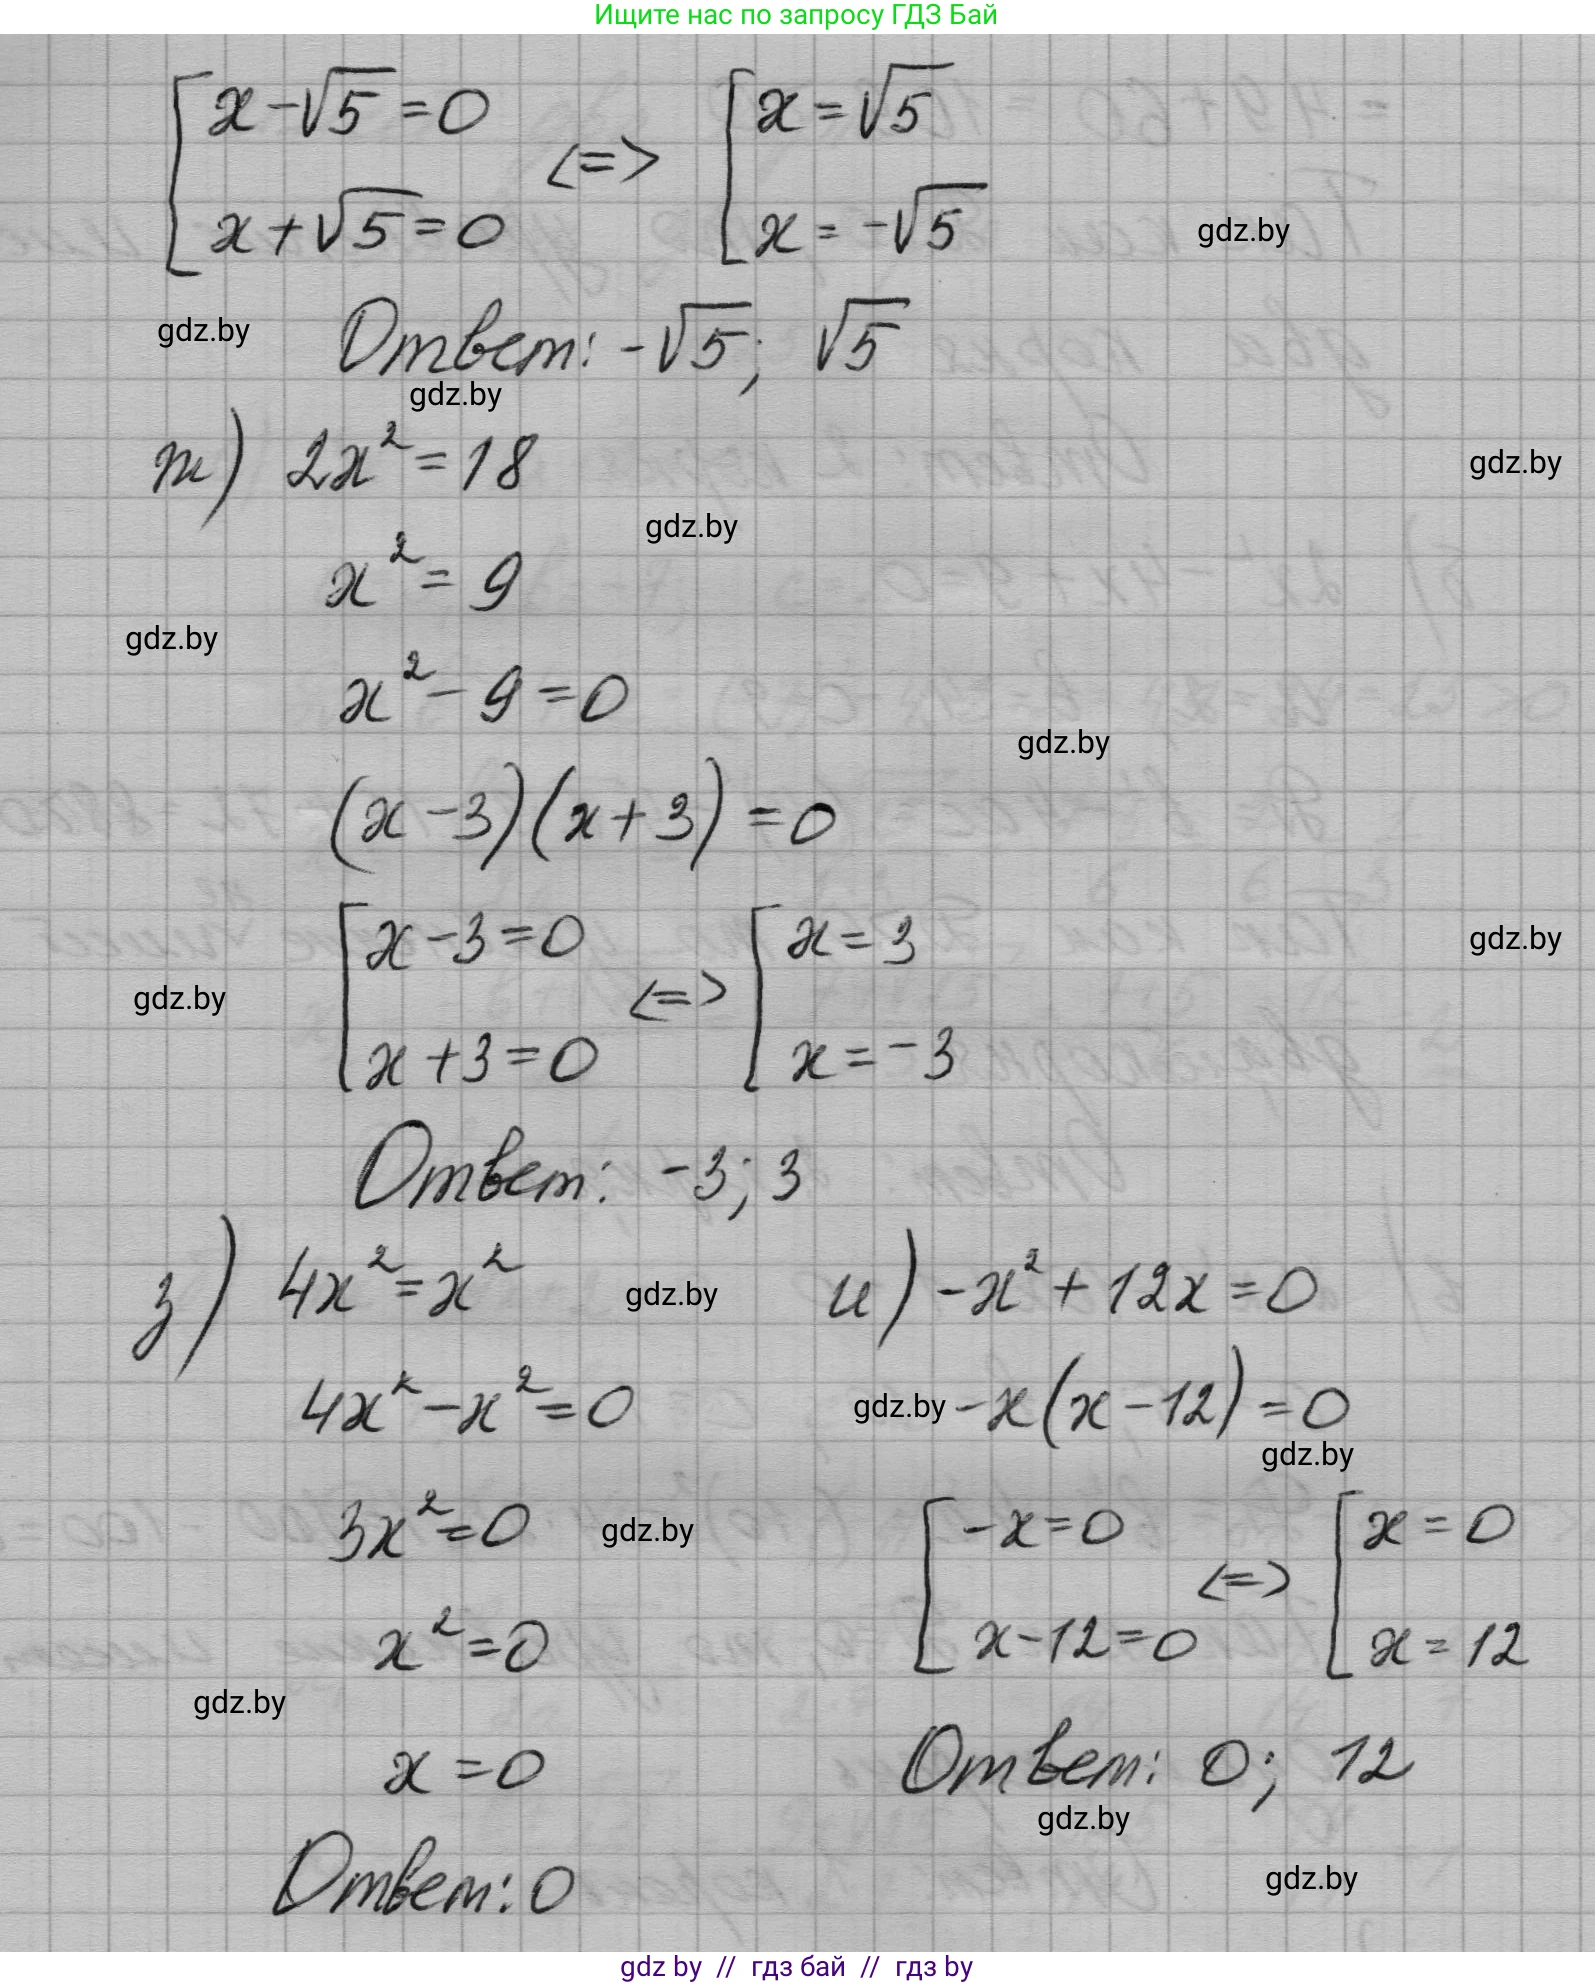 Ищите нас по запросу ГДЗ Бай
[ x-√5=0 <=> [ x=√5
x+√5=0 x=-√5
gdz.by
gdz.by
Ответ: -√5; √5
gdz.by
ж) 2x²=18
gdz.by
gdz.by
x²=9
gdz.by
x²-9=0
gdz.by
(x-3)(x+3)=0
[ x-3=0 <=> [ x=3
gdz.by
gdz.by
x+3=0 x=-3
Ответ: -3; 3
з) 4x²=x²
gdz.by
4x²-x²=0
3x²=0
gdz.by
x²=0
gdz.by
x=0
Ответ: 0
и) -x²+12x=0
gdz.by
-x(x-12)=0
gdz.by
[ -x=0 <=> [ x=0
x-12=0 x=12
Ответ: 0; 12
gdz.by
gdz.by
gdz by // гдз бай // гдз by